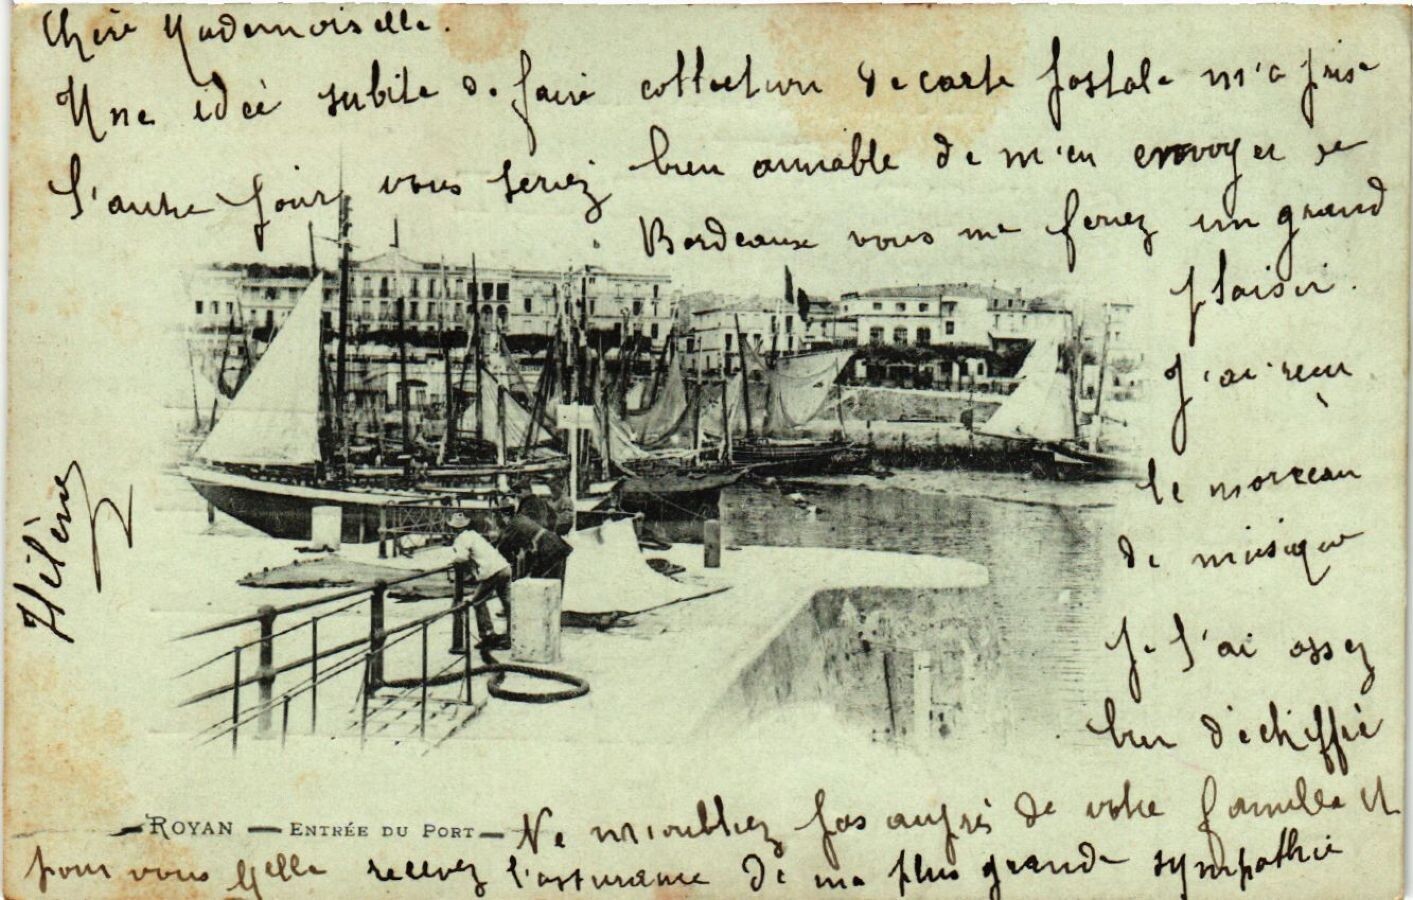 Chère Mademoiselle.
Une ideé subite de faire collection de carte postale m'a prise
l'autre jour, vous seriez bien aimable de m'en envoyer de
Bordeaux vous me feriez un grand
plaisir.
J'ai reçu
le morceau
de musique
Je l'ai assez
bien déchiffré
Ne m'oubliez pas auprès de votre famille et
pour vous recevez l'assurance de ma plus grande sympathie
Hélène
ROYAN — ENTRÉE DU PORT